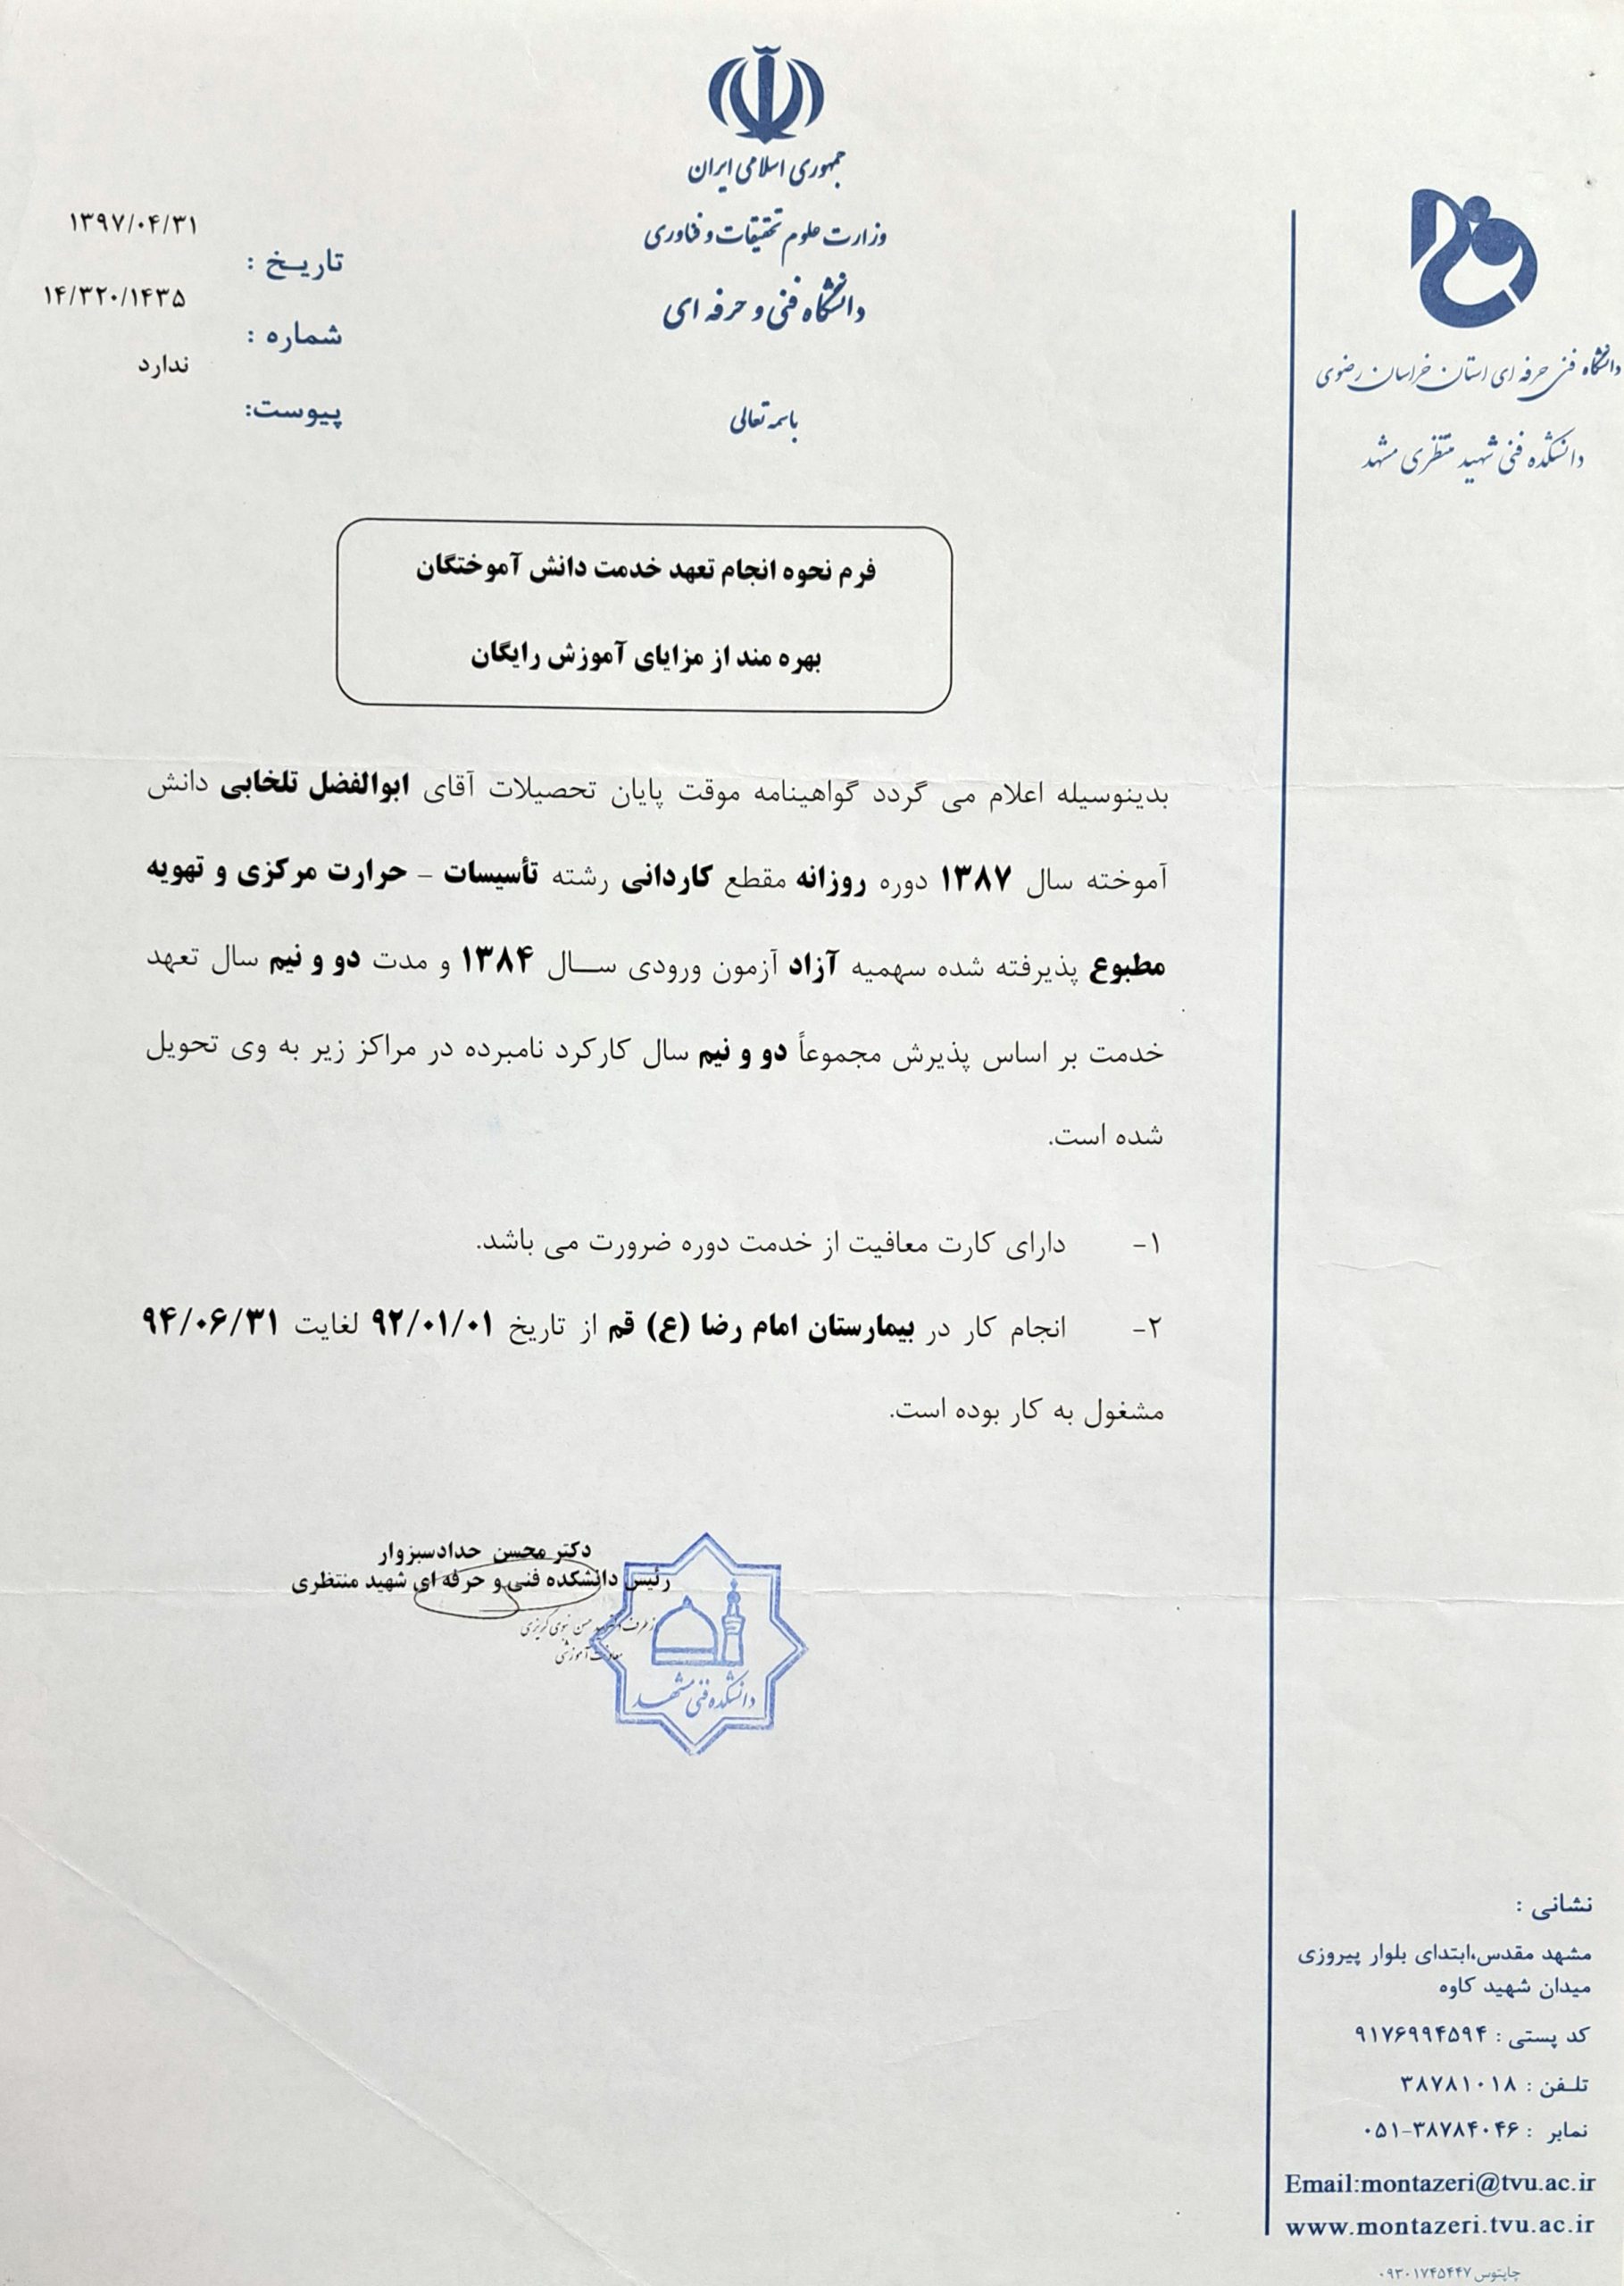 جمهوری اسلامی ایران
وزارت علوم تحقیقات و فناوری
دانشگاه فنی و حرفه ای
باسمه تعالی
دانشگاه فنی حرفه ای استان خراسان رضوی
دانشکده فنی شهید منتظری مشهد
۱۳۹۷/۰۴/۳۱
تاریـخ :
۱۴/۳۲۰/۱۴۳۵
شماره :
ندارد
پیوست:
فرم نحوه انجام تعهد خدمت دانش آموختگان
بهره مند از مزایای آموزش رایگان
بدینوسیله اعلام می گردد گواهینامه موقت پایان تحصیلات آقای ابوالفضل تلخابی دانش
آموخته سال ۱۳۸۷ دوره روزانه مقطع کاردانی رشته تأسیسات – حرارت مرکزی و تهویه
مطبوع پذیرفته شده سهمیه آزاد آزمون ورودی ســال ۱۳۸۴ و مدت دو و نیم سال تعهد
خدمت بر اساس پذیرش مجموعاً دو و نیم سال کارکرد نامبرده در مراکز زیر به وی تحویل
شده است.
۱- دارای کارت معافیت از خدمت دوره ضرورت می باشد.
۲- انجام کار در بیمارستان امام رضا (ع) قم از تاریخ ۹۲/۰۱/۰۱ لغایت ۹۴/۰۶/۳۱
مشغول به کار بوده است.
دکتر محسن حدادسبزوار
رئیس دانشکده فنی و حرفه ای شهید منتظری
معاونت آموزشی
دانشکده فنی مشهد
نشانی :
مشهد مقدس،ابتدای بلوار پیروزی
میدان شهید کاوه
کد پستی : ۹۱۷۶۹۹۴۵۹۴
تلـفن : ۳۸۷۸۱۰۱۸
نمابر : ۰۵۱-۳۸۷۸۴۰۴۶
Email:montazeri@tvu.ac.ir
www.montazeri.tvu.ac.ir
چاپتوس ۰۹۳۰۱۷۴۵۴۴۷